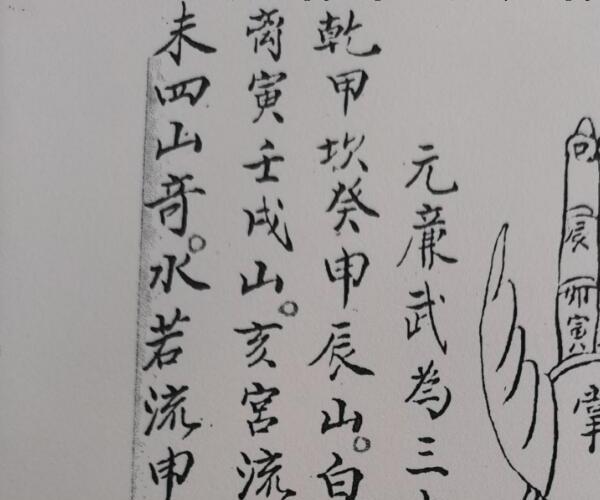 元廉武為三
乾甲坎癸申辰山。白
离寅壬戌山。亥宮流
未四山奇。水若流申
辰
卯
寅
掌